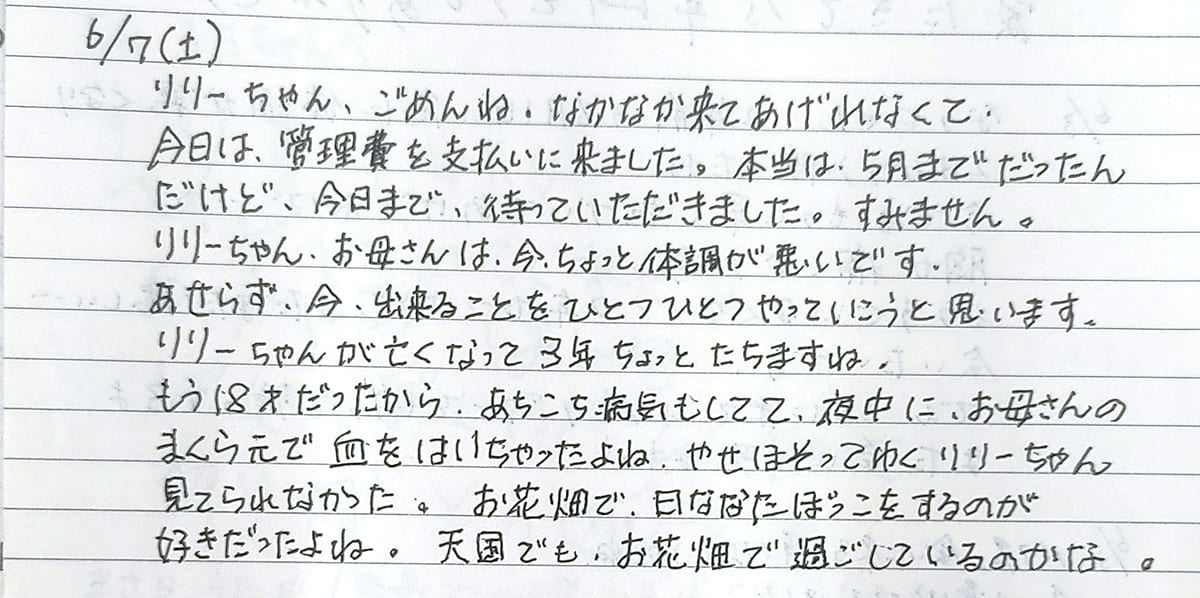 6/7(土)
リリーちゃん、ごめんね。なかなか来てあげれなくて.
今日は、管理費を支払いに来ました。本当は、5月までだったん
だけど、今日まで、待っていただきました。すみません。
リリーちゃん、お母さんは、今、ちょっと体調が悪いです.
あせらず、今、出来ることをひとつひとつやっていこうと思います。
リリーちゃんが亡くなって3年ちょっとたちますね.
もう18才だったから、あちこち病気もしてて、夜中に、お母さんの
まくら元で血をはいちゃったよね、やせほそってゆくリリーちゃん
見てられなかった。お花畑で、日ななたぼっこをするのが
好きだったよね。天国でも、お花畑で過ごしているのかな。